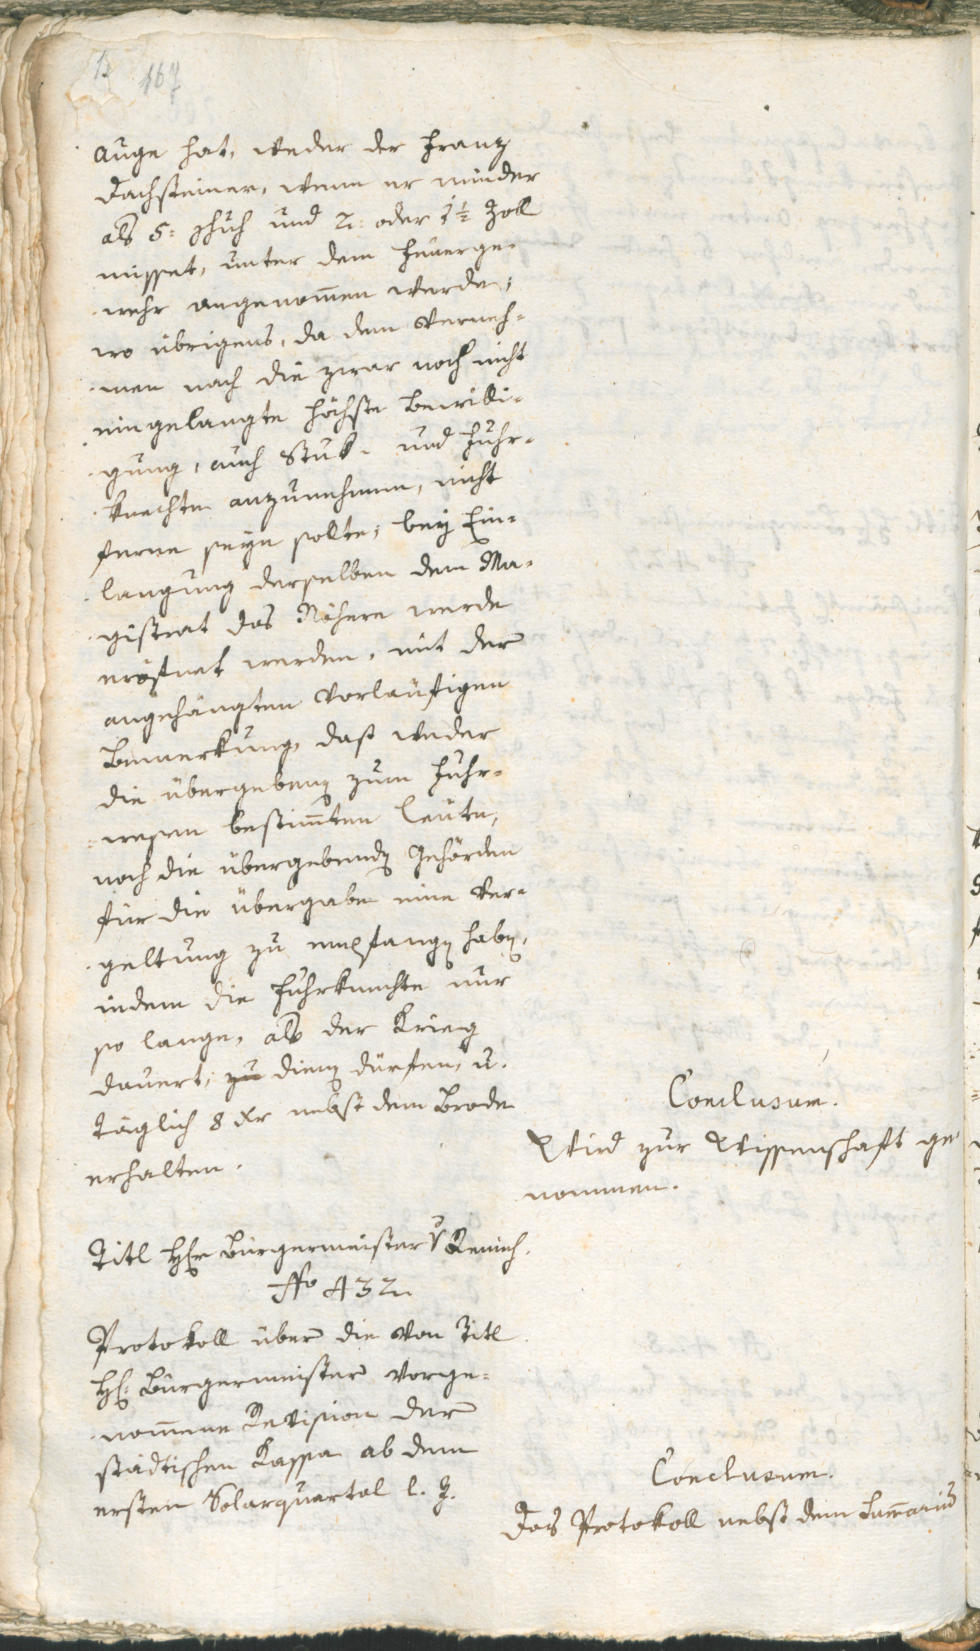 167
Auge hat, weder der Franz
Dachsteiner, wenn er minder
als 5: Schuh und 2: oder 1½ Zoll
misset, unter dem Feuerge-
wehr angenom̄en werde;
wo übrigens, da dem Verneh-
men nach die zwar noch nicht
eingelangte höchste Bewilli-
gung, auch Stuk- und Fuhr-
knechte anzunehmen, nicht
ferne seyn solle, bey Ein-
langung derselben dem Ma-
gistrat das Nähere werde
eröfnet werden, mit der
angehängten vorläufigen
Bemerkung, daß weder
die übergebene zum Fuhr-
wesen bestim̄ten Leüte,
noch die übergebende Behörden
für die Übergabe eine Ver-
geltung zu empfangen haben,
indem die Fuhrknechte nur
so lange, als der Krieg
dauert, zu dienen dürfen, u.
täglich 8 Xr nebst dem Brode
erhalten.
Conclusum.
Wird zur Wissenschaft ge-
nommen.
Titl Hr Bürgermeister v
No 432
Protokoll über die von Titl
H: Bürgermeister vorge-
nom̄ene Revision der
städtischen Kassa ab dem
ersten Solarquartal l. J.
Conclusum.
Das Protokoll nebst dem Sum̄ario